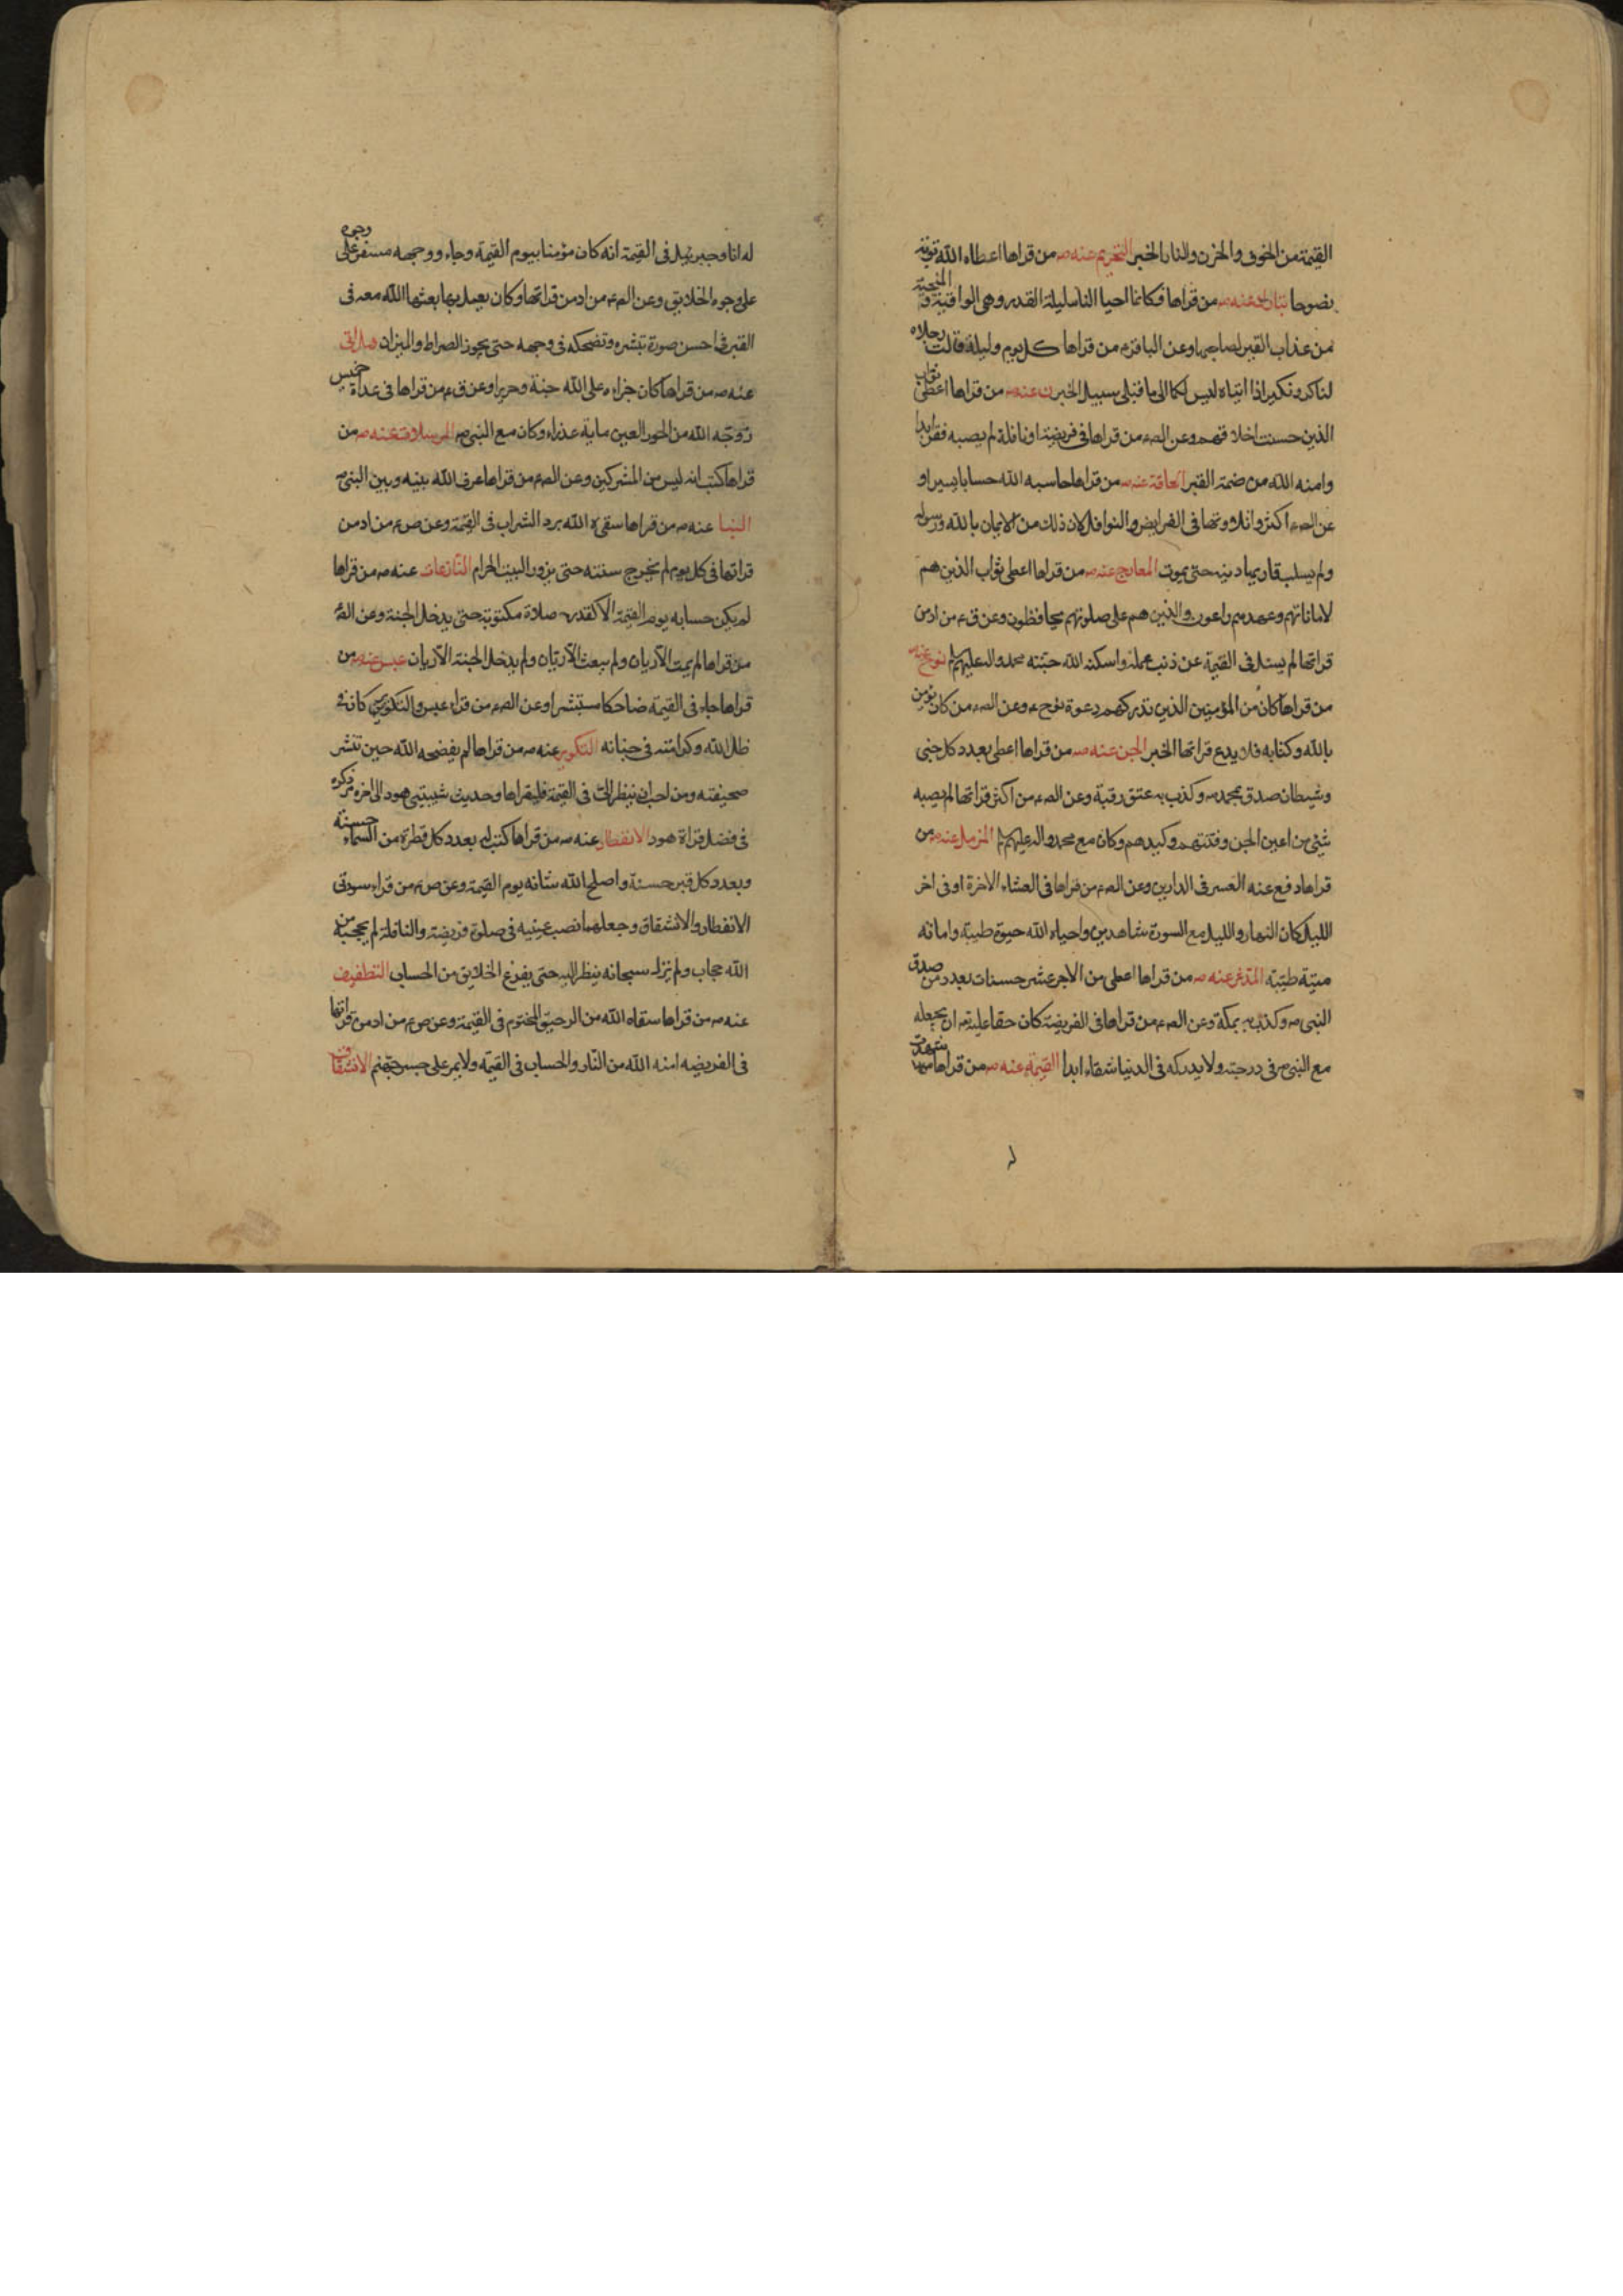 القيمة من الخوف والحزن والنار الخبر التحريم عنه ص من قراها اعطاه الله توبة
نصوحا تبارك عنه ص من قراها فكانما احيا الناس ليلة القدر وهي الواقية والمنجية
من عذاب القبر لصاحبها وعن الباقر ع من قراها كل يوم وليلة قالت رجلاه
لناكر ونكير اذا اتياه ليس لكما الى ما قبلي سبيل الخبر ن عنه ص من قراها اعطى ثواب
الذين حسنت اخلاقهم وعن الص ع من قراها في فريضة او نافلة لم يصبه فقر ابدا
وامنه الله من ضمة القبر الحاقة عنه ص من قراها حاسبه الله حسابا يسيرا و
عن الص ع اكثروا تلاوتها في الفرايض والنوافل لان ذلك من الايمان بالله ورسوله
ولم يسلب قاريها دينه حتى يموت المعارج عنه ص من قراها اعطى ثواب الذين هم
لاماناتهم وعهدهم راعون والذين هم على صلوتهم يحافظون وعن ق ع من ادمن
قراتها لم يسئل في القيمة عن ذنب عمله واسكنه الله جنته محمد واله عليهم نوح عنه
من قراها كان من المؤمنين الذين تدركهم دعوة نوح ع وعن الص ع من كان يؤمن
بالله وكتابه فلا يدع قراتها الخبر الجن عنه ص من قراها اعطى بعدد كل جني
وشيطان صدق بمحمد ص وكذب به عتق رقبة وعن الص ع من اكثر قراتها لم يصبه
شيئ من اعين الجن وفتنتهم وكيدهم وكان مع محمد واله عليهم المزمل عنه ص من
قراها دفع عنه العسر في الدارين وعن الص ع من قراها في العشاء الاخرة او في اخر
الليل كان النهار والليل مع السورة شاهدين واحياه الله حيوة طيبة واماته
ميتة طيبة المدثر عنه ص من قراها اعطى من الاجر عشر حسنات بعدد من صدق
النبي ص وكذب به بمكة وعن الص ع من قراها في الفريضة كان حقا عليه ان يجعله
مع النبي ص في درجته ولا يدركه في الدنيا شقاء ابدا القيمة عنه ص من قراها شهدت
له انا وجبرئيل في القيمة انه كان مؤمنا بيوم القيمة وجاء ووجهه مسفر على وجوه
على وجوه الخلايق وعن الص ع من ادمن قراتها وكان يعمل بها بعثها الله معه في
القبر في احسن صورة تبشره وتضحكه في وجهه حتى يجوز الصراط والميزان هل اتى
عنه ص من قراها كان جزاءه على الله جنة وحريرا وعن ق ع من قراها في غداة خميس
زوجه الله من الحور العين ماية عذراء وكان مع النبي ص المرسلات عنه ص من
قراها كتب انه ليس من المشركين وعن الص ع من قراها عرف الله بينه وبين النبي ص
النبا عنه ص من قراها سقي ه الله برد الشراب في القيمة وعن ص ع من ادمن
قراتها في كل يوم لم يخرج سنته حتى يزور البيت الحرام النازعات عنه ص من قراها
لم يكن حسابه يوم القيمة الا كقدر صلاة مكتوبة حتى يدخل الجنة وعن الص
من قراها لم يمت الا ريان ولم يبعث الا ريان ولم يدخل الجنة الا ريان عبس عنه ص من
قراها جاء في القيمة ضاحكا مستبشرا وعن الص ع من قراء عبس والتكوير كان في
ظل الله وكرامته في جنانه التكوير عنه ص من قراها لم يفضحه الله حين تنشر
صحيفته ومن احب ان ينظر الي في القيمة فليقراها وحديث شيبتني هود الى اخره مر ذكره
في فضل قراة هود الانفطار عنه ص من قراها كتب له بعدد كل قطرة من السماء حسنة
وبعدد كل قبر حسنة واصلح الله شانه يوم القيمة وعن ص ع من قراء سورتي
الانفطار والانشقاق وجعلهما نصب عينيه في صلوة فريضة والنافلة لم يحجبه من
الله حجاب ولم يزل سبحانه ينظر اليه حتى يفرغ الخلايق من الحساب التطفيف
عنه ص من قراها سقاه الله من الرحيق المختوم في القيمة وعن ص ع من ادمن قراتها
في الفريضه امنه الله من النار والحساب في القيمة ولا يمر على جسر جهنم الانشقاق